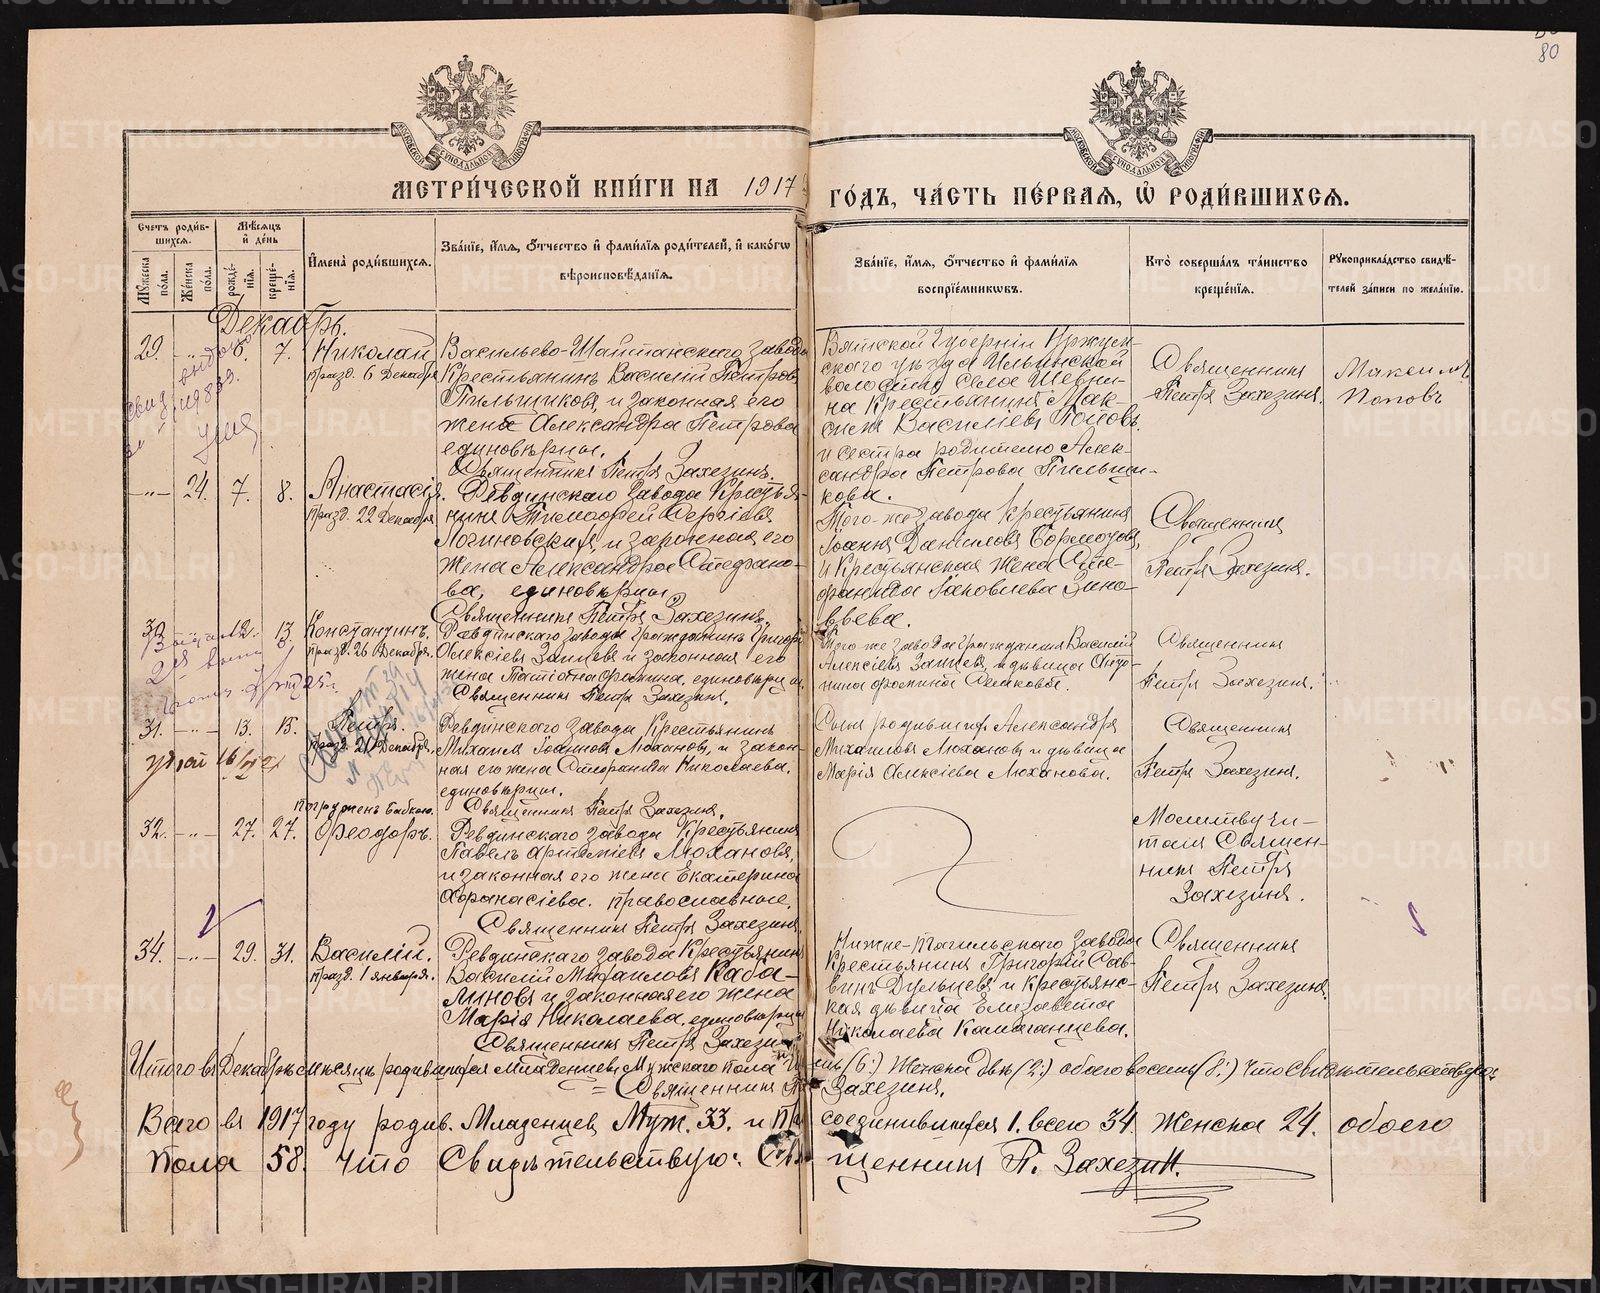 80
МОСКОВСКОЙ СѴНОДАЛЬНОЙ ТИПОГРАФІИ
МОСКОВСКОЙ СѴНОДАЛЬНОЙ ТИПОГРАФІИ
МЕТРИ́ЧЕСКОЙ КНИ́ГИ НА 1917
ГО́ДЪ, ЧА́СТЬ ПЕ́РВАЯ, Ѡ҆ РОДИ́ВШИХСЯ.
Счетъ роди́в-
шихся.
Мѣ́сяцъ
и҆ де́нь
Мꙋ́жеска по́ла.
Же́нска по́ла.
рожде́-
нїя.
креще́-
нїя.
И҆мена̀ роди́вшихся.
Зва́нїе, и҆́мя, Ѻ҆́тчество и҆ фами́лїя роди́телей, и҆ како́гѡ
вѣроисповѣ́данїя.
Зва́нїе, и҆́мя, Ѻ҆́тчество и҆ фами́лїя
воспрїе́мникѡвъ.
Кто̀ соверша́лъ та́инство
креще́нїя.
Рꙋкоприкла́дство свидѣ́-
телей за́писи по жела́нїю.
Декабрь.
29. -„- 6. 7. Николай
празд. 6 Декабря
Васильево-Шайтанскаго завода
Крестьянинъ Василій Петровъ
Пильщиковъ, и законная его
жена Александра Петрова
единовѣрцы.
Священникъ Петръ Захезинъ.
Вятской Губерніи Уржум-
скаго уѣзда Ильинской
волости, села Шевни-
на Крестьянинъ Мак-
симъ Василіевъ Поповъ.
и сестра родителю Алек-
сандра Петрова Пильщи-
кова.
Священникъ
Петръ Захезинъ.
Максимъ
Поповъ
-„- 24. 7. 8. Анастасія.
празд. 22 Декабря
Ревдинскаго завода Крестья-
нинъ Тимофей Сергіевъ
Логиновскихъ, и законная его
жена Александра Стефано-
ва, единовѣрцы
Священникъ Петръ Захезинъ.
Того-же завода крестьянинъ
Іоаннъ Даниловъ Бормотовъ,
и Крестьянская жена Сте-
фанида Іаковлева Зино-
вьева.
Священникъ
Петръ Захезинъ.
30 -„- 12. 13. Константинъ.
празд. 26 Декабря.
Ревдинскаго завода гражданинъ Григорій
Алексіевъ Зайцевъ и законная его
жена Татіана Фомина, единовѣрцы.
Священникъ Петръ Захезинъ.
Того же завода гражданинъ Василій
Алексіевъ Зайцевъ, и дѣвица Анто-
нина Фомина Семкова.
Священникъ
Петръ Захезинъ.
31. -„- 13. 15. Петръ.
празд. 21 Декабря.
Ревдинскаго завода Крестьянинъ
Михаилъ Іоанновъ Мохановъ, и закон-
ная его жена Стефанида Николаева.
единовѣрцы.
Священникъ Петръ Захезинъ.
Сынъ родившиф. Александръ
Михаиловъ Мохановъ и дѣвица
Марія Алексіева Моханова.
Священникъ
Петръ Захезинъ.
погруженъ бабкою.
32. -„- 27. 27. Ѳеодоръ.
Ревдинскаго завода Крестьянинъ
Павелъ Артеміевъ Мохановъ,
и законная его жена Екатерина
Афанасіева. православные.
Священникъ Петръ Захезинъ.
Молитву чи-
талъ Священ-
никъ Петръ
Захезинъ.
34. -„- 29. 31. Василій.
празд. 1 января.
Ревдинскаго завода Крестьянинъ
Василій Михаиловъ Каба-
линовъ и законная его жена
Марія Николаева. единовѣрцы
Священникъ Петръ Захезинъ
Нижне-Тагильскаго завода
Крестьянинъ Григорій Сав-
винъ Дульцевъ и крестьянс-
кая дѣвица Елизавета
Николаева Камаганцева.
Священникъ
Петръ Захезинъ.
Итого въ Декабрѣ мѣсяцѣ родившихся Младенцевъ Мужскаго пола шесть (6:) Женска двѣ (2:) обоего восемь (8:) Что свидѣтельствую:
= Священникъ Петръ Захезинъ.
Всего въ 1917 году родив. Младенцевъ Муж. 33. и присоединившихся 1. всего 34 Женска 24. обоего
пола 58. Что Свидѣтельствую: Священникъ П. Захезин.
METRIKI.GASO-URAL.RU